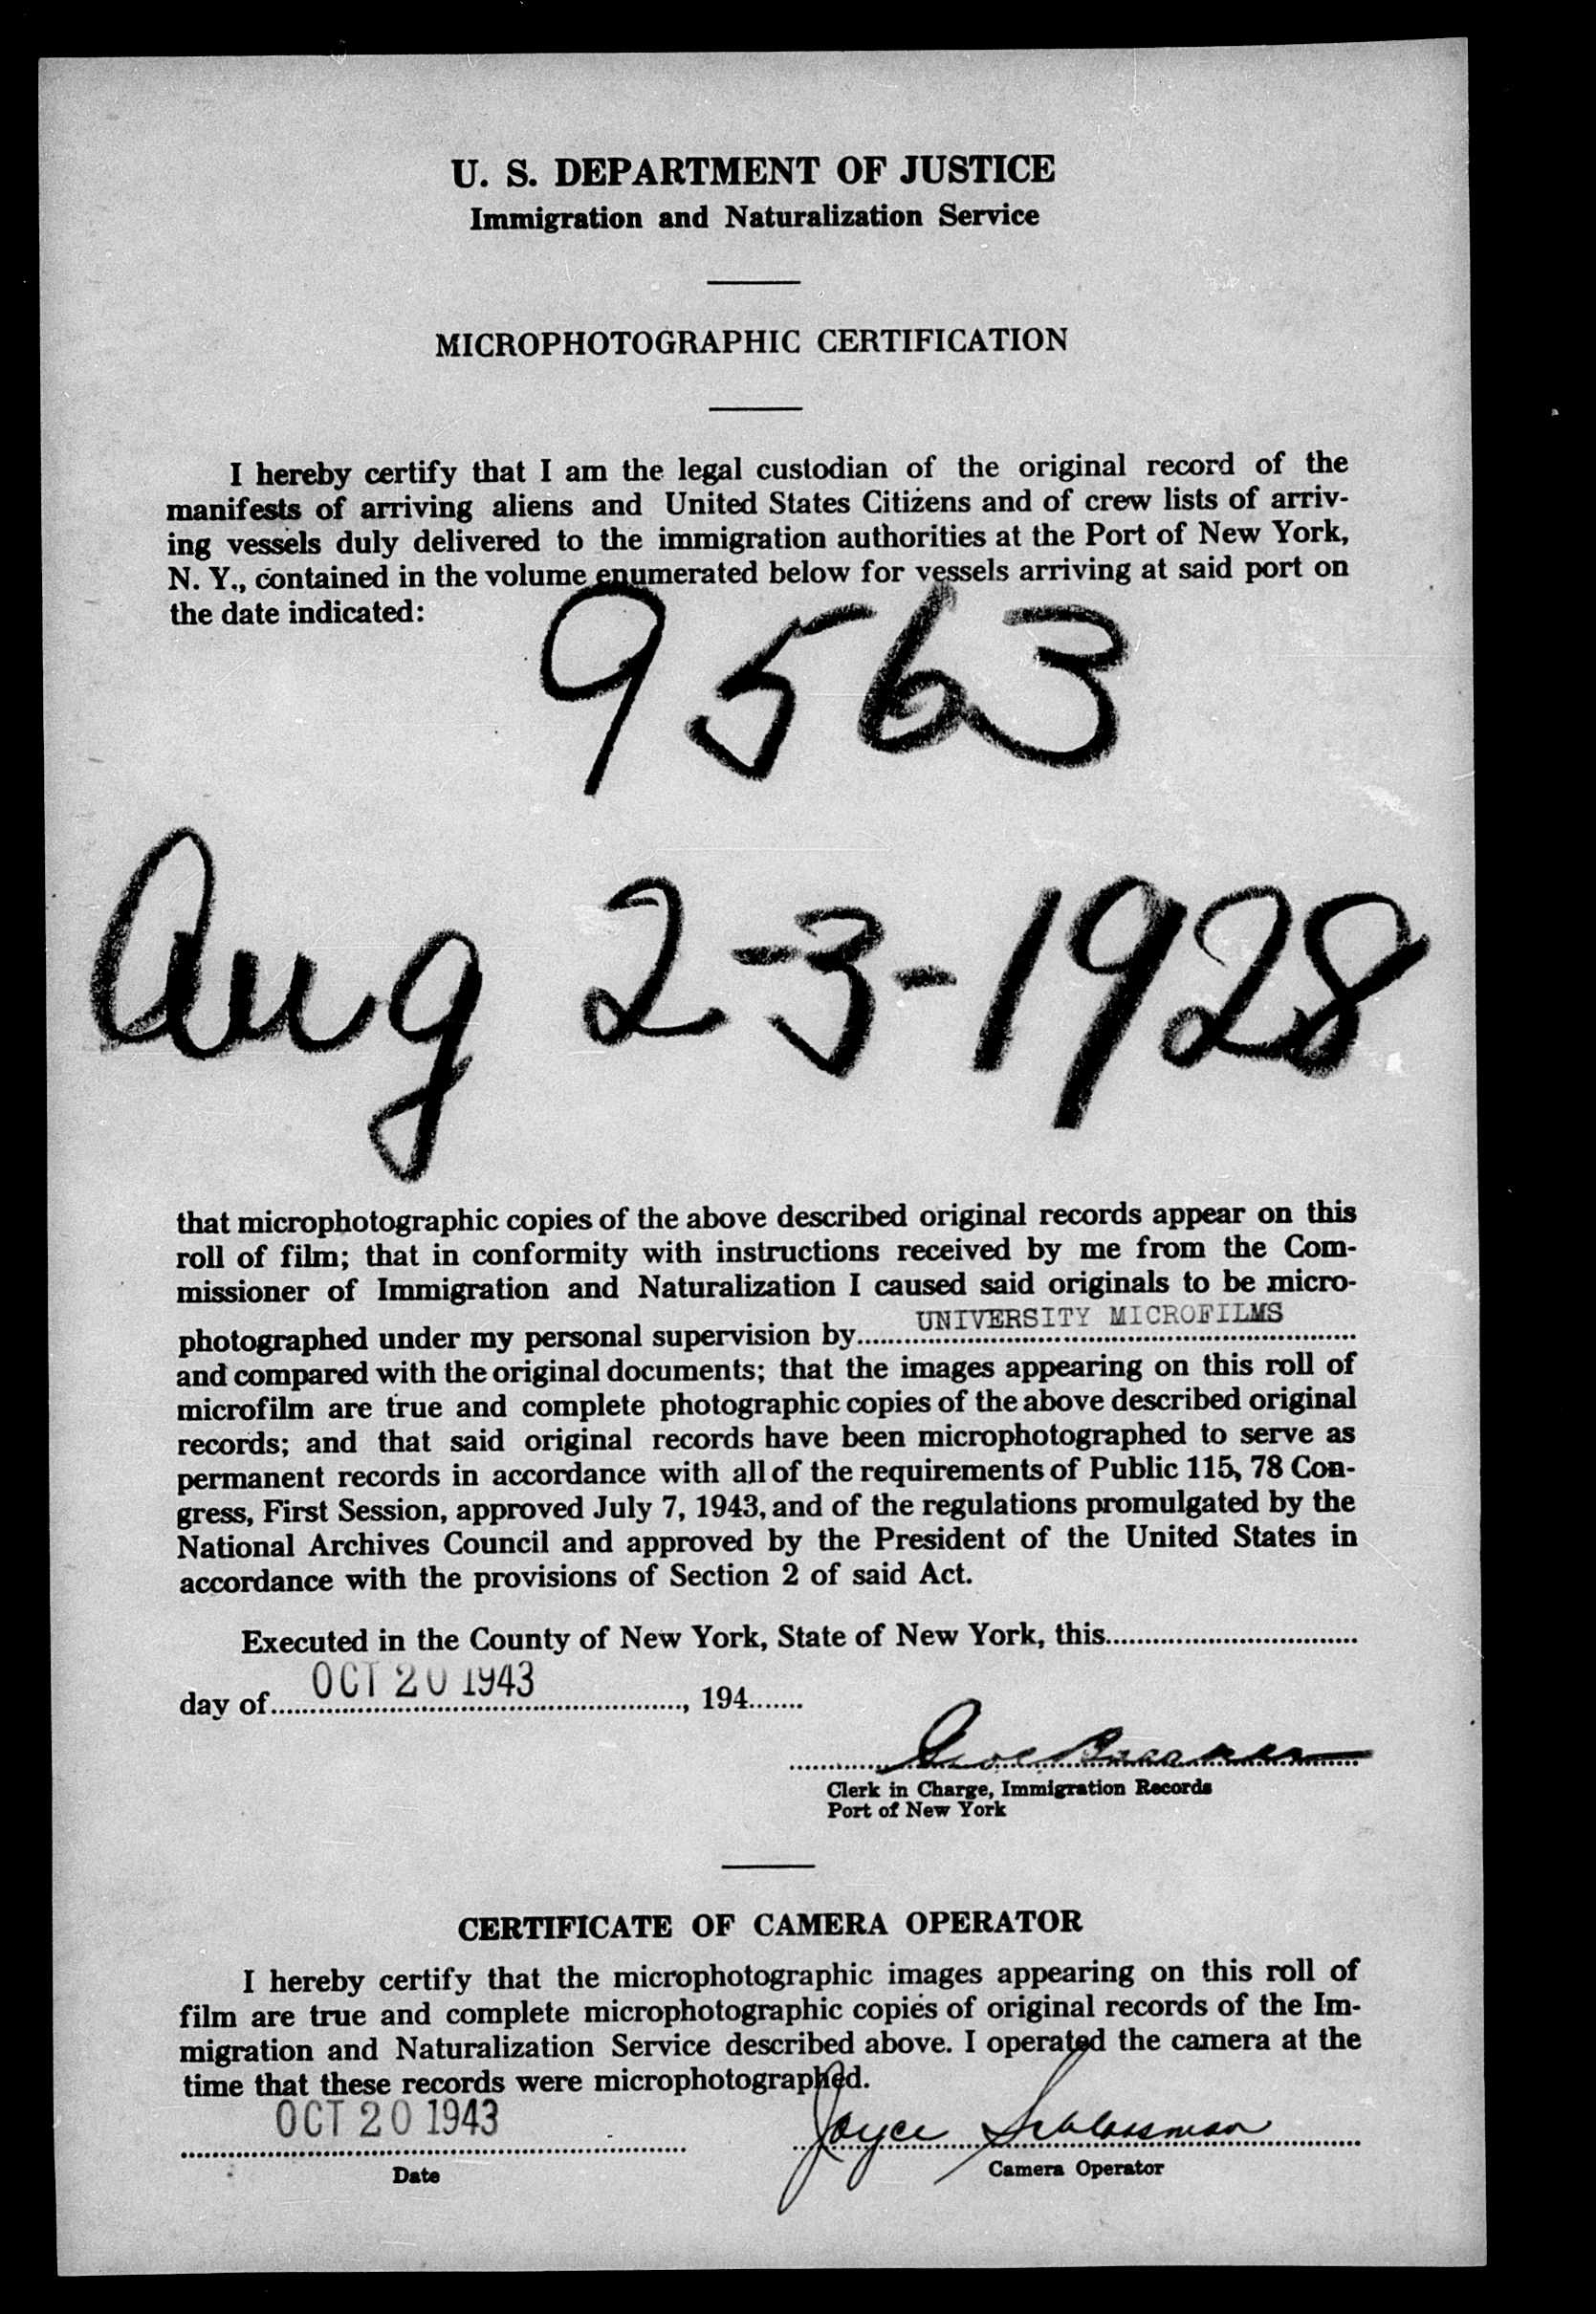 U. S. DEPARTMENT OF JUSTICE
Immigration and Naturalization Service
MICROPHOTOGRAPHIC CERTIFICATION
I hereby certify that I am the legal custodian of the original record of the
manifests of arriving aliens and United States Citizens and of crew lists of arriv-
ing vessels duly delivered to the immigration authorities at the Port of New York,
N. Y., contained in the volume enumerated below for vessels arriving at said port on
the date indicated:
9563
Aug 2-3-1928
that microphotographic copies of the above described original records appear on this
roll of film; that in conformity with instructions received by me from the Com-
missioner of Immigration and Naturalization I caused said originals to be micro-
photographed under my personal supervision by UNIVERSITY MICROFILMS
and compared with the original documents; that the images appearing on this roll of
microfilm are true and complete photographic copies of the above described original
records; and that said original records have been microphotographed to serve as
permanent records in accordance with all of the requirements of Public 115, 78 Con-
gress, First Session, approved July 7, 1943, and of the regulations promulgated by the
National Archives Council and approved by the President of the United States in
accordance with the provisions of Section 2 of said Act.
Executed in the County of New York, State of New York, this
day of OCT 20 1943, 194
Clerk in Charge, Immigration Records
Port of New York
CERTIFICATE OF CAMERA OPERATOR
I hereby certify that the microphotographic images appearing on this roll of
film are true and complete microphotographic copies of original records of the Im-
migration and Naturalization Service described above. I operated the camera at the
time that these records were microphotographed.
OCT 20 1943 Joyce Schlossman
Date Camera Operator